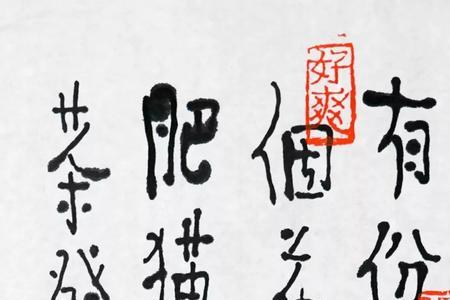 有份
個
肥猫
茶
好爽